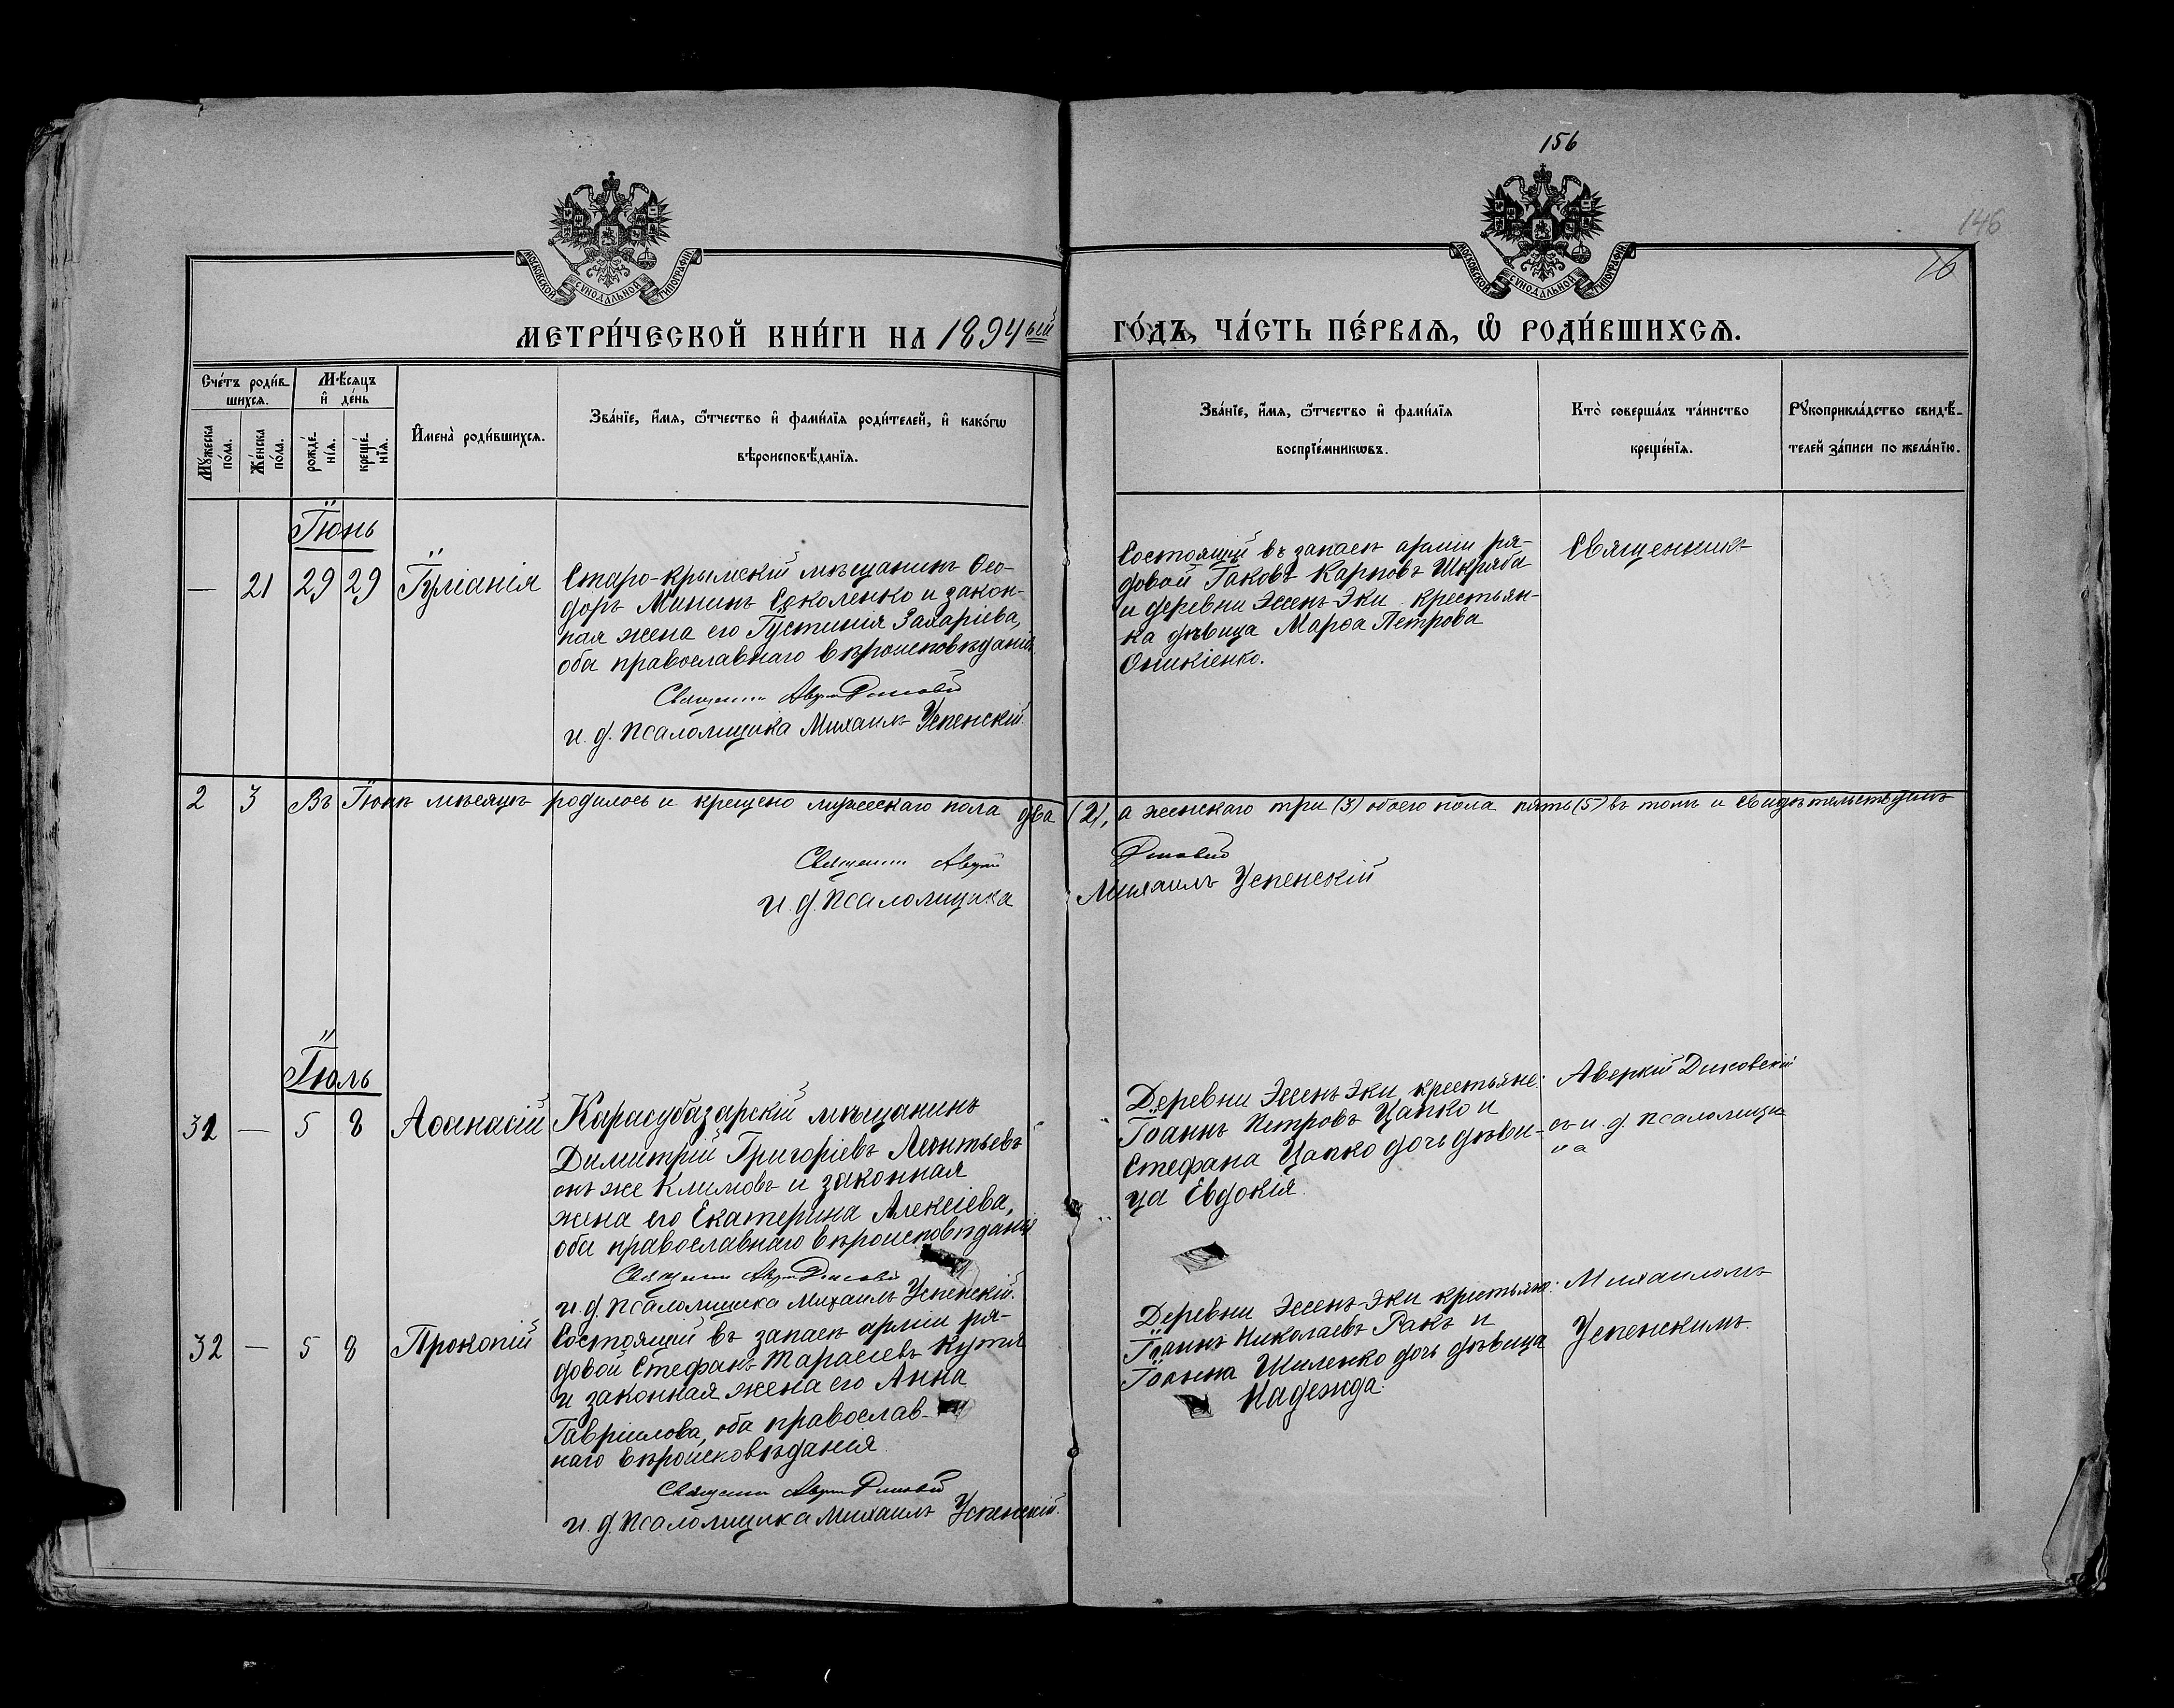 156
146
16
МОСКОВСКОЙ СѴНОДАЛЬНОЙ ТИПОГРАФІИ
МОСКОВСКОЙ СѴНОДАЛЬНОЙ ТИПОГРАФІИ
МЕТРИ́ЧЕСКОЙ КНИ́ГИ НА 1894ый
ГО́ДЪ, ЧА́СТЬ ПЕ́РВАѦ, Ѽ РОДИ́ВШИХСѦ.
Сче́тъ роди́в-
шихсѧ.
Мѣ́сѧцъ
и҆ де́нь
Мꙋ́жеска
по́ла.
Же́нска
по́ла.
рожде́-
нїѧ.
креще́-
нїѧ.
И҆мена̀ роди́вшихсѧ.
Зва́нїе, и҆́мѧ, ѻ҆́тчество и҆ фами́лїѧ роди́телей, и҆ како́гѡ
вѣроисповѣ́данїѧ.
Зва́нїе, и҆́мѧ, ѻ҆́тчество и҆ фами́лїѧ
воспрїе́мникѡвъ.
Кто̀ соверша́лъ та́инство
креще́нїѧ.
Рꙋкоприкла́дство свидѣ́-
телей за́писи по жела́нїю.
Іюнь
— 21 29 29 Іуліанія
Старо-крымскій мѣщанинъ Ѳео-
доръ Мининъ Соколенко и закон-
ная жена его Іустинія Захаріева,
оба православнаго вѣроисповѣданія.
Священн Авер
и. д. псаломщика Михаилъ Успенскій.
Состоящій въ запасѣ арміи ря-
довой Іаковъ Карповъ Шкряба
и деревни Эссенъ-Эки крестьян-
ка дѣвица Марѳа Петрова
Оникіенко.
Священник
2 3 Въ Іюнѣ мѣсяцѣ родилось и крещено мужескаго пола два (2), а женскаго три (3) обоего пола пять (5) въ томъ и свидѣтельствуемъ
Священн Авер
и. д. псаломщика Михаилъ Успенскій
Іюль
31 — 5 8 Аѳанасій
Карасубазарскій мѣщанинъ
Димитрій Григоріевъ Леонтьевъ
онъ же Климовъ и законная
жена его Екатерина Алексіева,
оба православнаго вѣроисповѣданія
Священн Авер
и. д. псаломщика Михаилъ Успенскій.
Деревни Эссенъ Эки крестьяне:
Іоаннъ Петровъ Цапко и
Стефана Цапко дочь дѣви-
ца Евдокія.
Аверкій
съ и. д. псаломщи
32 — 5 8 Прокопій
Состоящій въ запасѣ арміи ря-
довой Стефанъ Тарасіевъ Кутя
и законная жена его Анна
Гавріилова, оба православ-
наго вѣроисповѣданія.
Священн Авер
и. д. псаломщика Михаилъ Успенскій.
Деревни Эссенъ-Эки крестьяне:
Іоаннъ Николаевъ Ракъ и
Іоанна Шиленко дочь дѣвица
Надежда.
Михаиломъ
Успенскимъ.